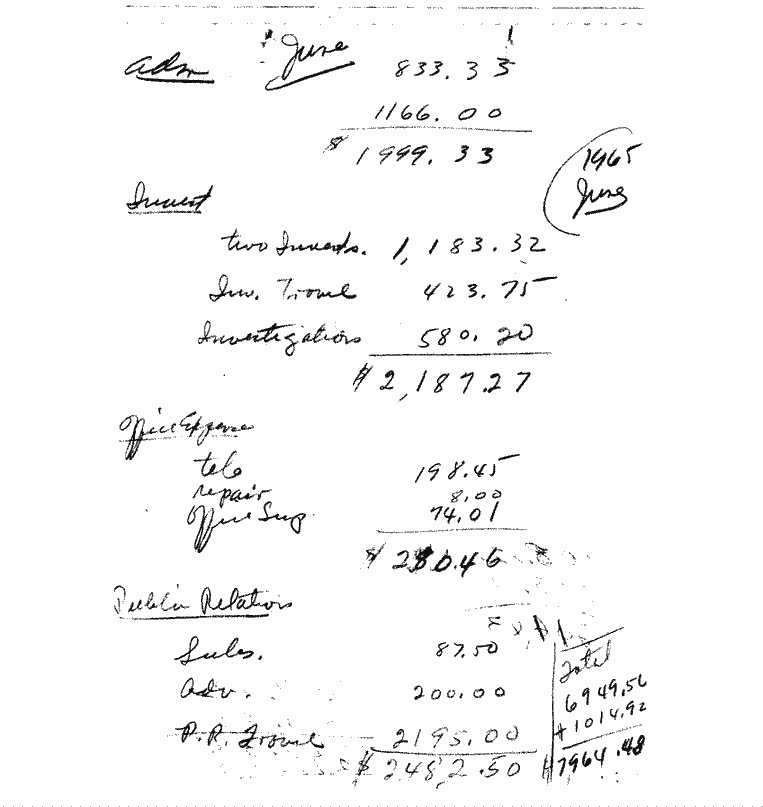 Adm June 833.33
1166.00
$ 1999.33
1965
June
Invest
two Invests. 1,183.32
Inv. Travel 423.75
Investigations 580.20
$ 2,187.27
Office Expense
tele 198.45
repair 8.00
Office Sup. 74.01
$ 280.46
Public Relations
Subs. 87.50
Adv. 200.00
P.R. Travel 2195.00
$ 2482.50
Total
6949.56
+1014.92
$7964.48